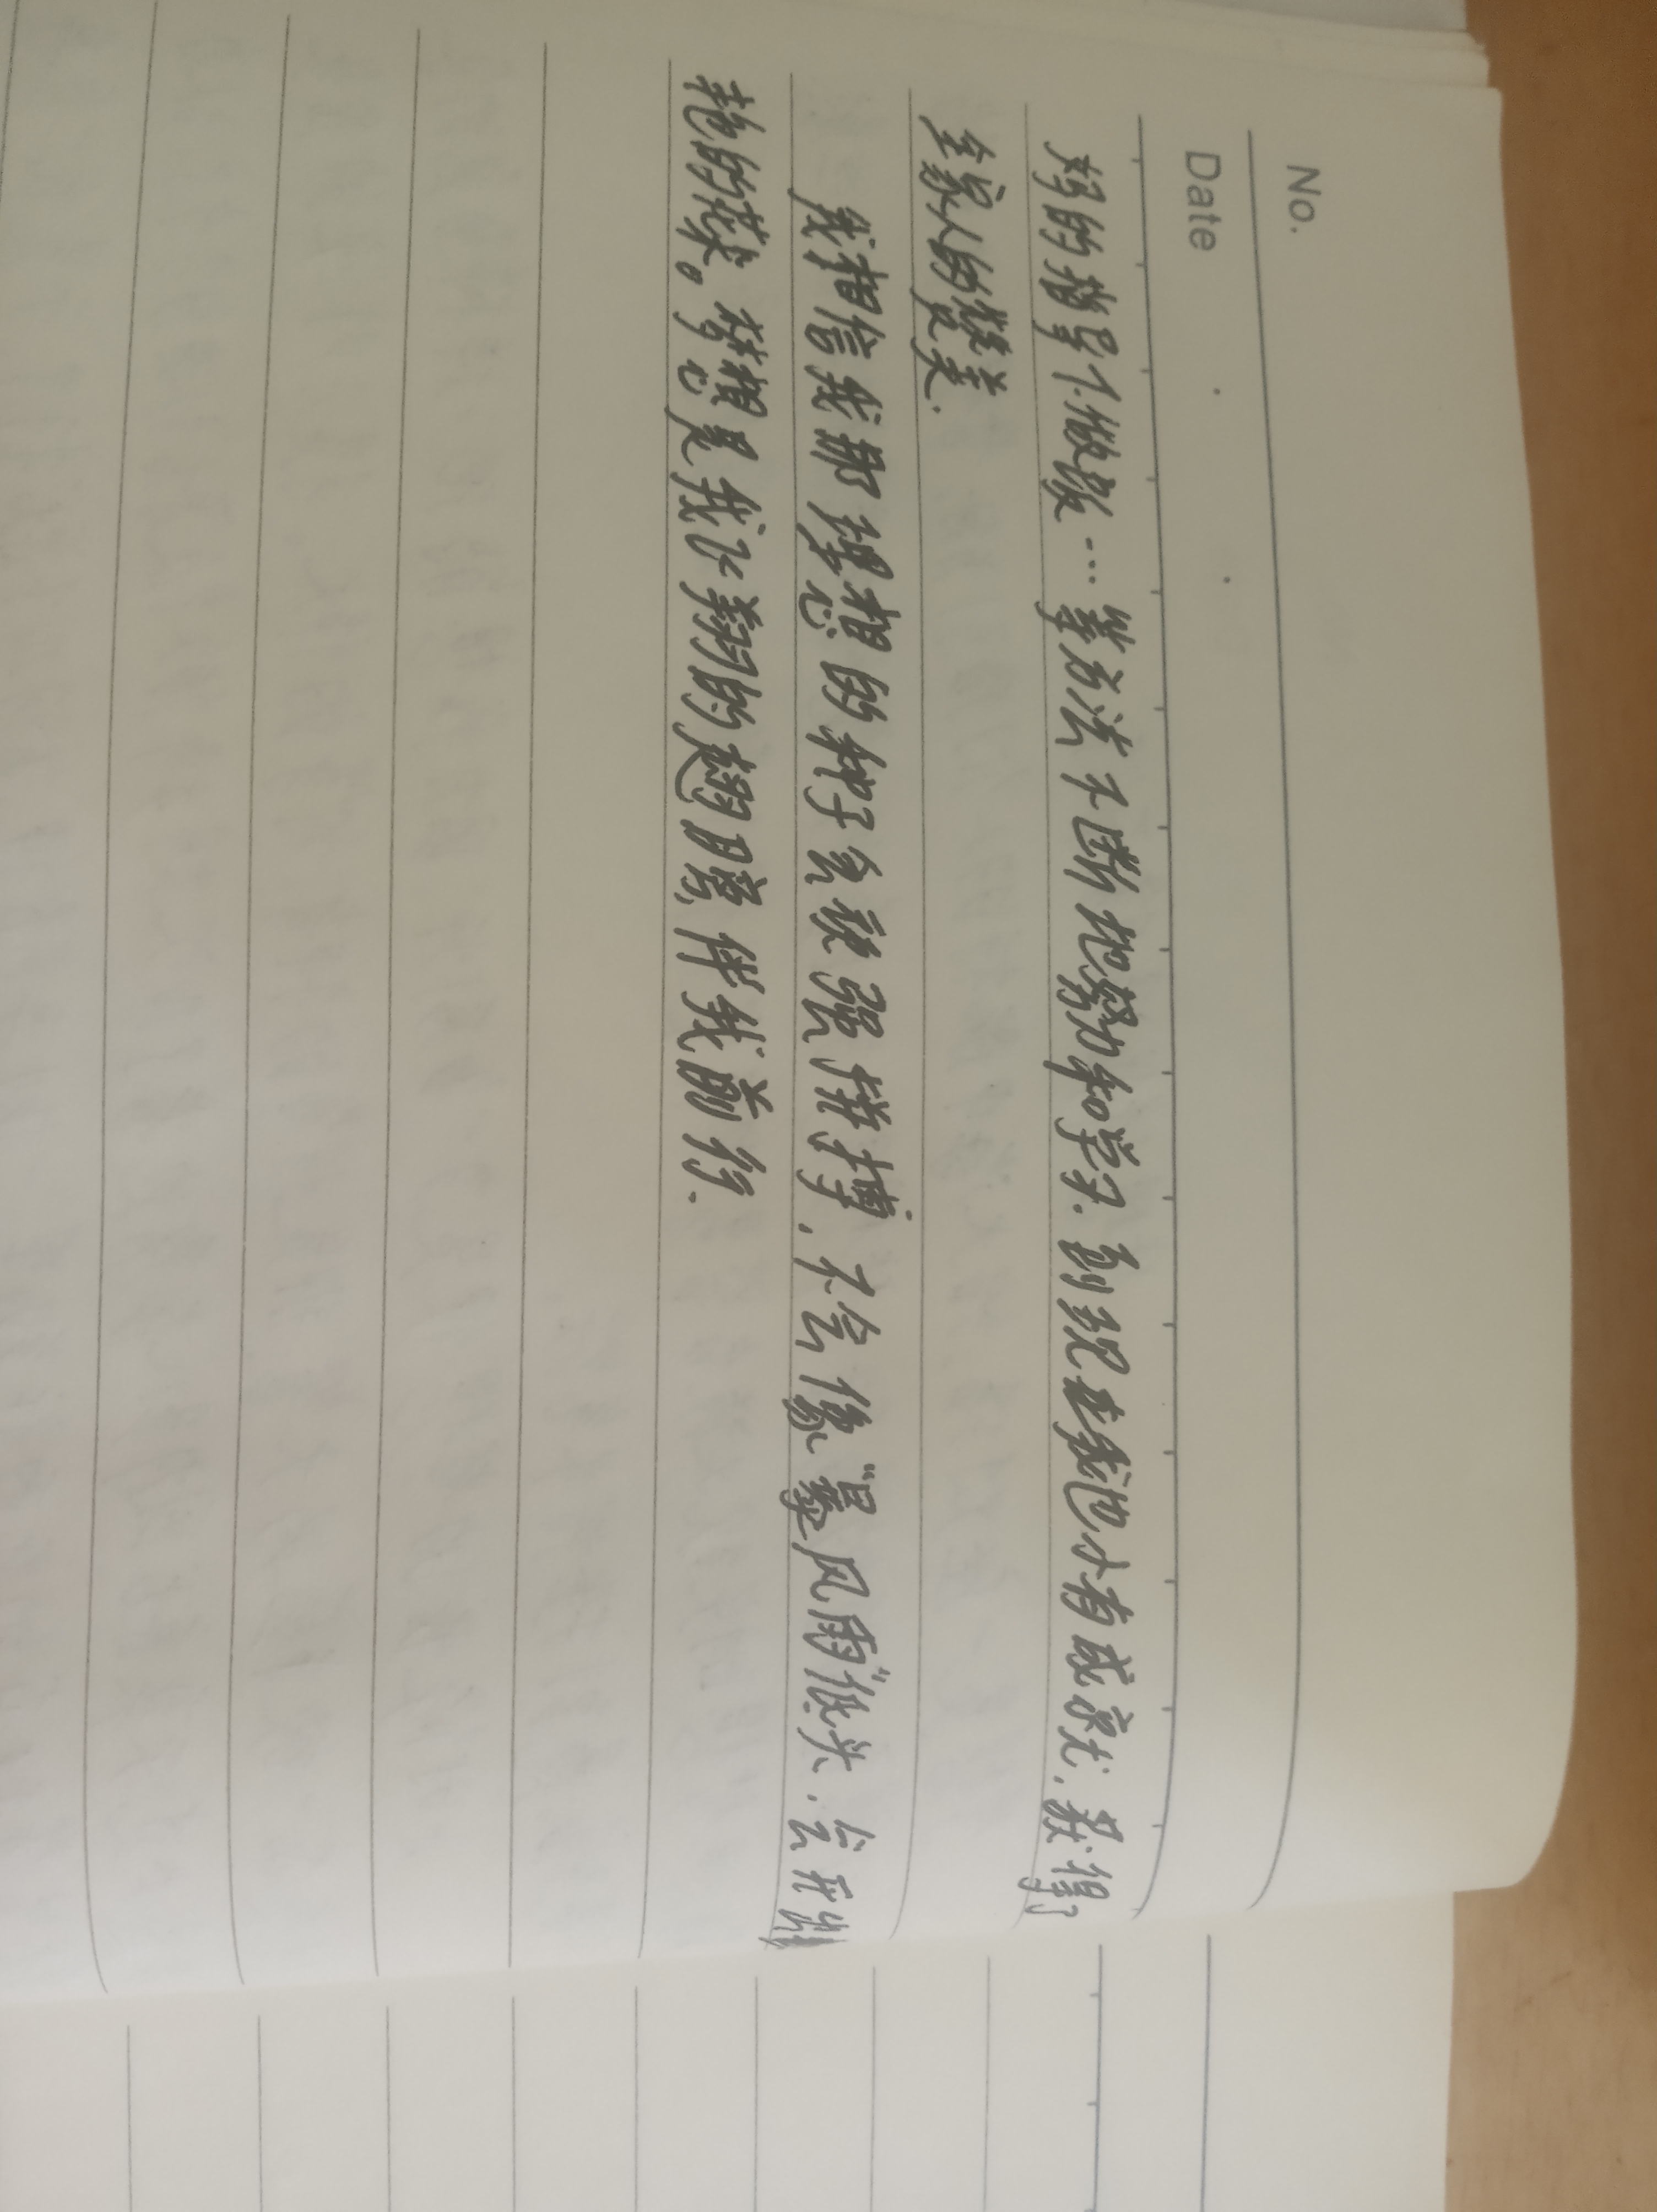 No.
Date
妈的指导下做饭…等方法不断地努力和学习.到现在我也小有成就,获得了
全家人的赞美.
我相信我那理想的种子会顽强拼搏,不会像"暴风雨"低头,会开出
艳的花。梦想是我飞翔的翅膀,伴我前行.